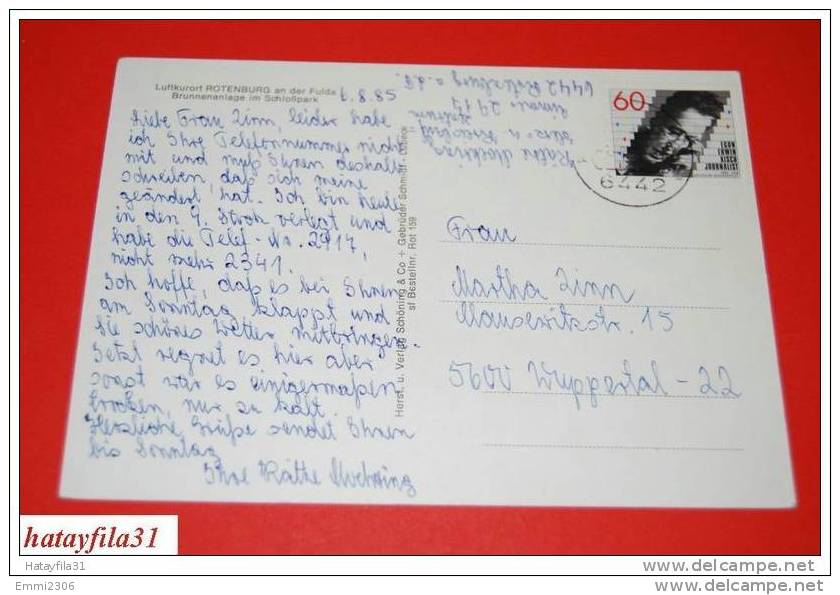 Luftkurort ROTENBURG an der Fulda
Brunnenanlage im Schloßpark
6.8.85
Liebe Frau Zinn, leider habe
ich Ihre Telefonnummer nicht
mit und muß Ihnen deshalb
schreiben, daß sich meine
geändert hat. Ich bin heute
in den 4. Stock verlegt und
habe die Telef.-Nr. 2917,
nicht mehr 2341.
Ich hoffe, daß es bei Ihnen
am Sonntag klappt und
Sie schönes Wetter mitbringen.
Jetzt regnet es hier aber
sonst war es einigermaßen
trocken, nur zu kalt.
Herzliche Grüße sendet Ihnen
bis Sonntag
Ihre Käthe Moehring
Herst. u. Verlag Schöning & Co + Gebrüder Schmidt
sf Bestellnr. Rot 159
Käthe
2917
6442 Rotenburg a.d.F.
60
EGON
ERWIN
KISCH
JOURNALIST
6442
Frau
Martha Zinn
15
5600 Wuppertal-22
hatayfila31
Hatayfila31
Emmi2306
www.delcampe.net
www.delcampe.net